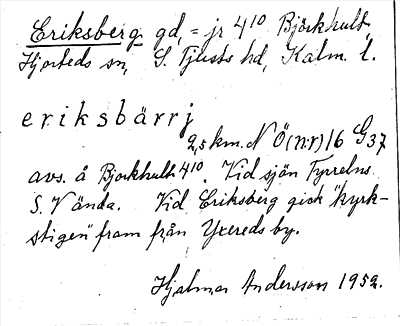 Eriksberg gd, = jr 4¹⁰ Björkhult,
Hjorteds sn, S. Tjusts hd, Kalm. l.
eriksbärrj
2,5 km. N Ö (n:r) 16 G 37
avs. å Björkhult 4¹⁰. Vid sjön Tyrrelns
S. V ända. Vid Eriksberg gick "kyrk-
stigen" fram från Yxereds by.
Hjalmar Andersson 1952.